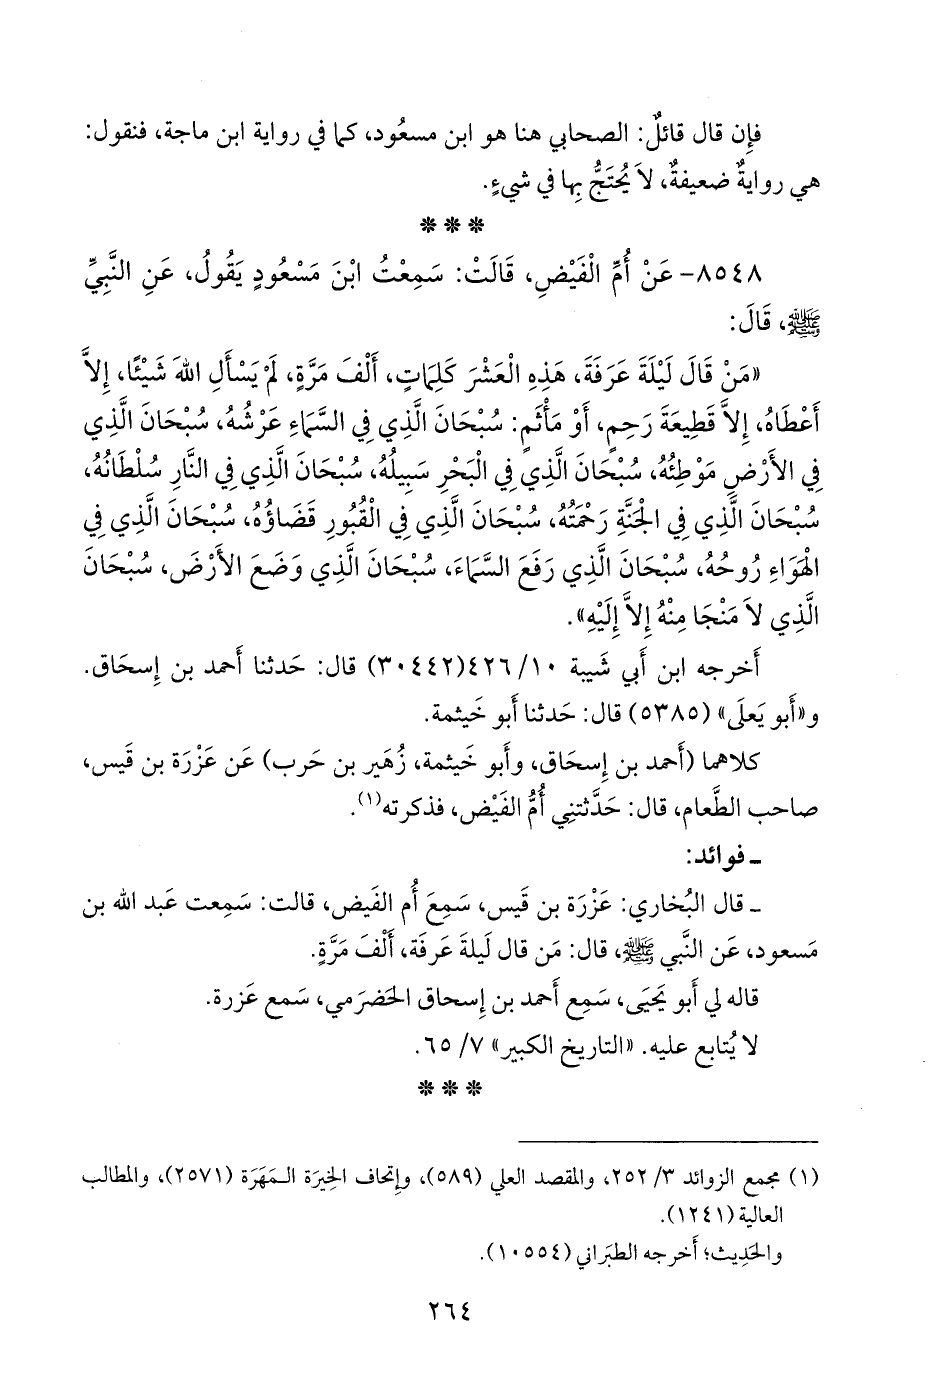 فإِن قال قائلٌ: الصحابي هنا هو ابن مسعُود، كما في رواية ابن ماجة، فنقول:
هي روايةٌ ضعيفةٌ، لاَ يُحتَجُّ بِها في شيءٍ.
***
٨٥٤٨- عَنْ أُمِّ الْفَيْضِ، قَالَتْ: سَمِعْتُ ابْنَ مَسْعُودٍ يَقُولُ، عَنِ النَّبِيِّ
ﷺ، قَالَ:
«مَنْ قَالَ لَيْلَةَ عَرَفَةَ، هَذِهِ الْعَشْرَ كَلِمَاتٍ، أَلْفَ مَرَّةٍ، لَمْ يَسْأَلِ اللهَ شَيْئًا، إِلاَّ
أَعْطَاهُ، إِلاَّ قَطِيعَةَ رَحِمٍ، أَوْ مَأْثَمٍ: سُبْحَانَ الَّذِي فِي السَّمَاءِ عَرْشُهُ، سُبْحَانَ الَّذِي
فِي الأَرْضِ مَوْطِئُهُ، سُبْحَانَ الَّذِي فِي الْبَحْرِ سَبِيلُهُ، سُبْحَانَ الَّذِي فِي النَّارِ سُلْطَانُهُ،
سُبْحَانَ الَّذِي فِي الجَنَّةِ رَحْمَتُهُ، سُبْحَانَ الَّذِي فِي الْقُبُورِ قَضَاؤُهُ، سُبْحَانَ الَّذِي فِي
الهَوَاءِ رُوحُهُ، سُبْحَانَ الَّذِي رَفَعَ السَّمَاءَ، سُبْحَانَ الَّذِي وَضَعَ الأَرْضَ، سُبْحَانَ
الَّذِي لاَ مَنْجَا مِنْهُ إِلاَّ إِلَيْهِ».
أَخرجه ابن أَبي شَيبة ١٠/ ٤٢٦(٣٠٤٤٢) قال: حَدثنا أَحمد بن إِسحَاق.
و«أَبو يَعلَى» (٥٣٨٥) قال: حَدثنا أَبو خَيثمة.
كلاهما (أَحمد بن إِسحَاق، وأَبو خَيثمة، زُهَير بن حَرب) عَن عَزْرَة بن قَيس،
صاحب الطَّعام، قال: حَدَّثتنِي أُمُّ الفَيْض، فذكرته(١).
ـ فوائد:
ـ قال البُخاري: عَزْرَة بن قَيس، سَمِعَ أُم الفَيض، قالت: سَمِعت عَبد الله بن
مَسعود، عَن النَّبي ﷺ، قال: مَن قال لَيلةَ عَرفة، أَلْفَ مَرَّةٍ.
قاله لي أَبو يَحيَى، سَمِع أَحمد بن إِسحاق الحَضرَمي، سَمع عَزرة.
لا يُتابع عليه. «التاريخ الكبير» ٧/ ٦٥.
***
(١) مجمع الزوائد ٣/ ٢٥٢، والمقصد العلي (٥٨٩)، وإِتحاف الخِيرَة الـمَهَرَة (٢٥٧١)، والمطالب
العالية (١٢٤١).
والحَدِيث؛ أَخرجه الطبَراني (١٠٥٥٤).
٢٦٤